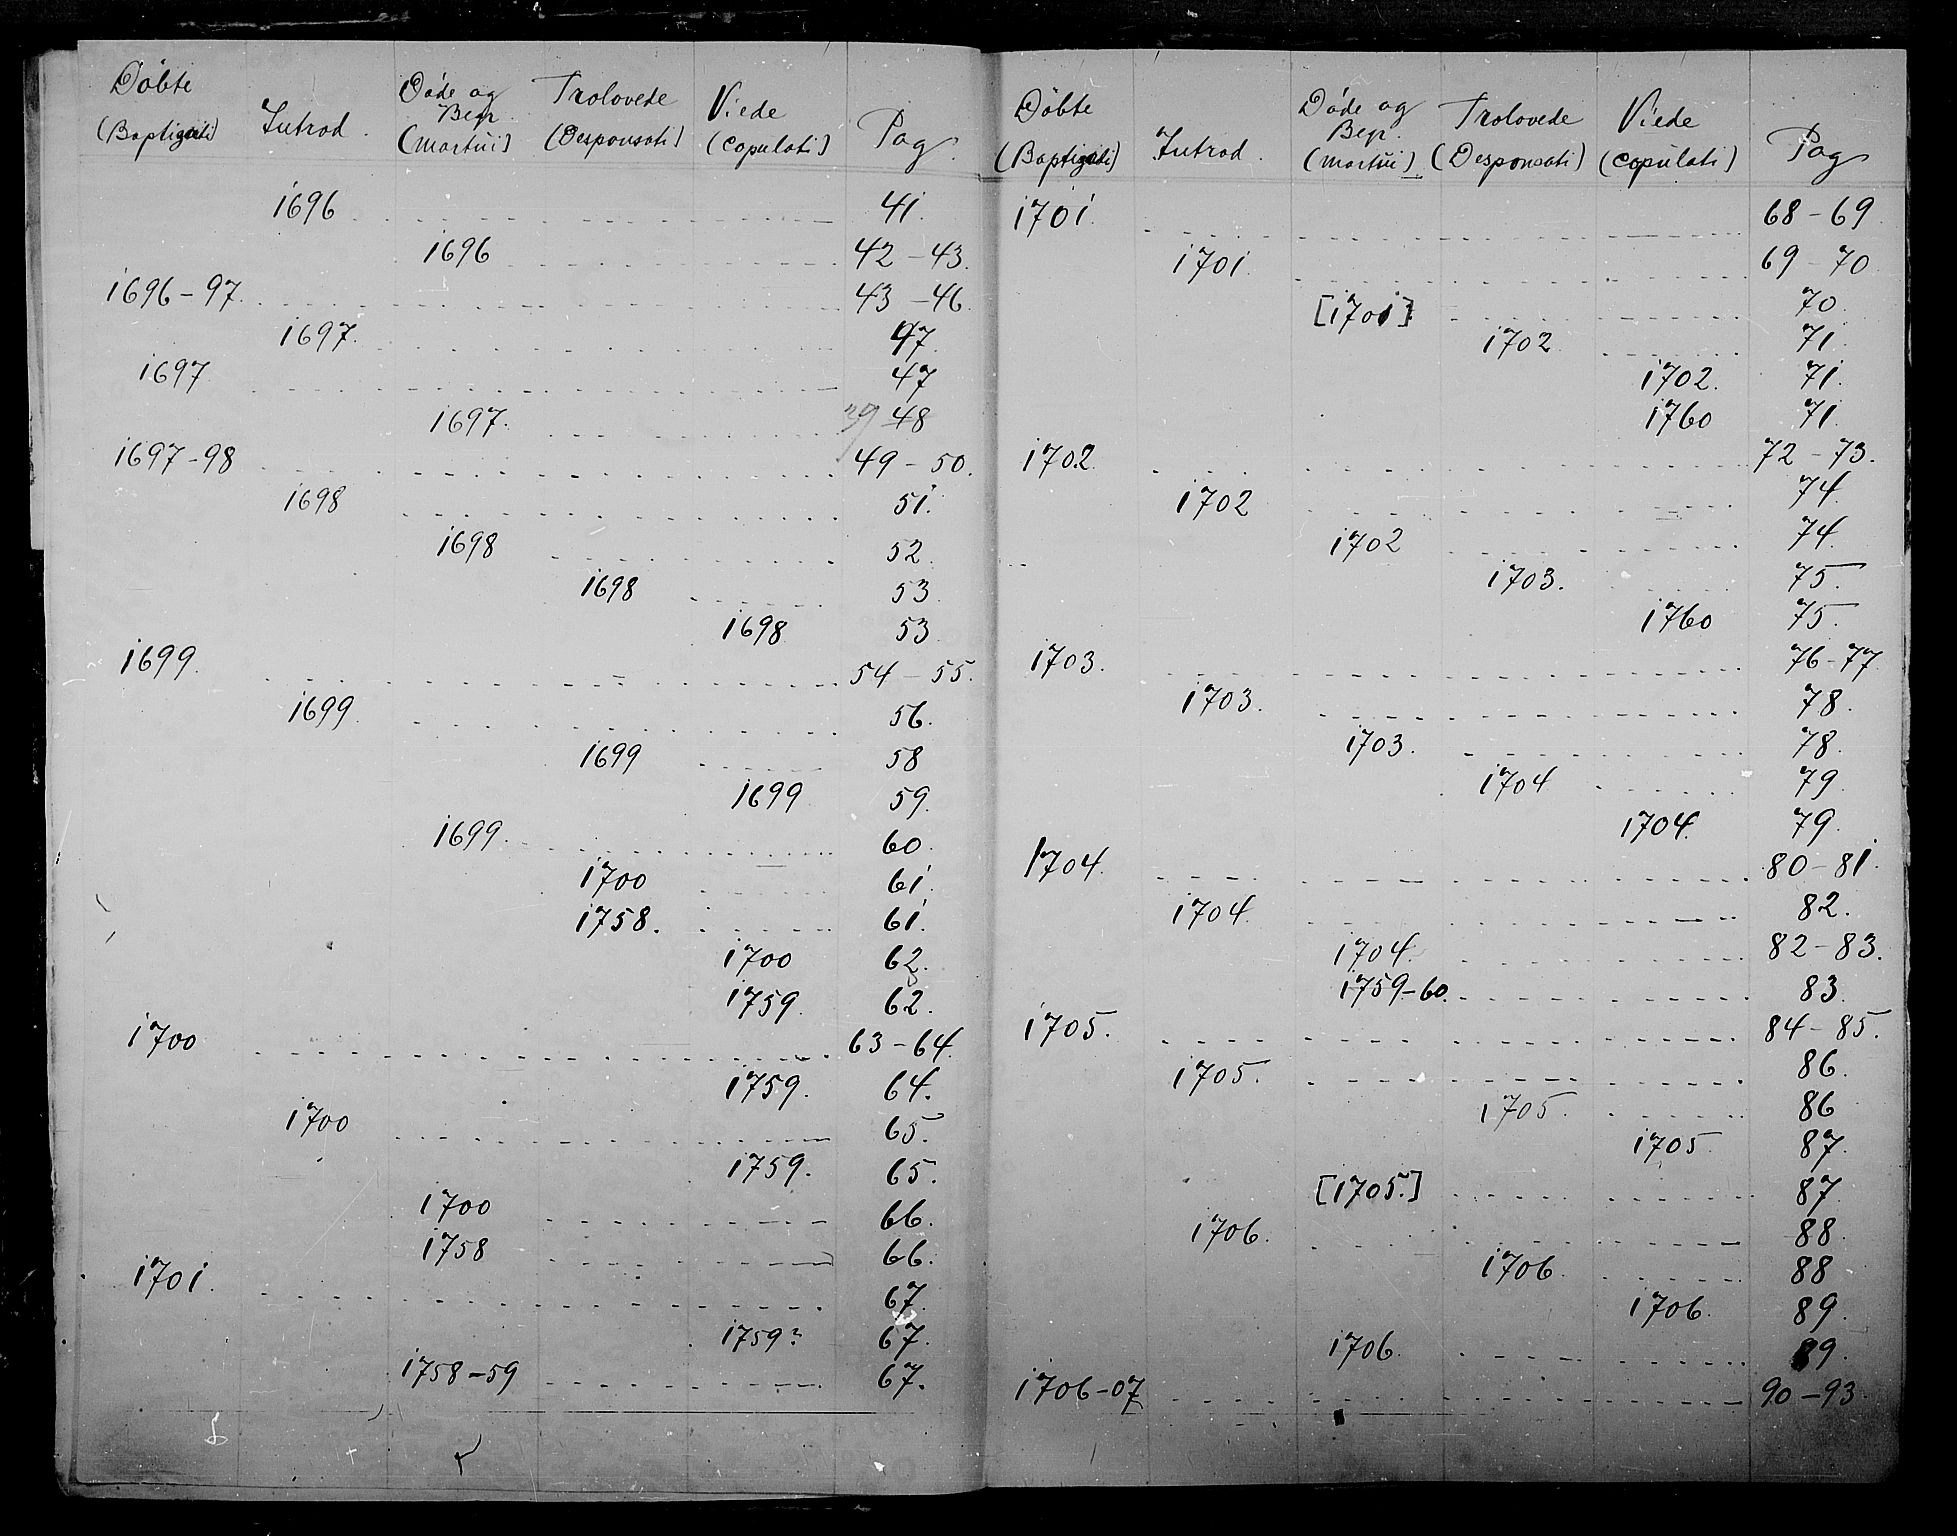 Döbte (Baptizati) Introd. Döde og Begr. (mortui) Trolovede (Desponsati) Viede (copulati) Pag.
1696 41.
1696 42-43.
1696-97. 43-46.
1697. 47.
1697 47
1697. 39 48
1697-98 49-50.
1698 51.
1698 52.
1698 53.
1698 53
1699. 54-55.
1699. 56.
1699 58
1699 59.
1699. 60.
1700 61.
1758. 61.
1700 62.
1759. 62.
1700 63-64.
1759. 64.
1700 65.
1759. 65.
1700 66.
1758 66.
1701. 67.
1759? 67.
1758-59 67.
Döbte (Baptizati) Introd. Döde og Begr. (mortui) Trolovede (Desponsati) Viede (copulati) Pag
1701. 68-69.
1701. 69-70
[1701] 70.
1702 71.
1702. 71.
1760 71.
1702. 72-73.
1702 74.
1702 74.
1703. 75.
1760 75.
1703. 76-77
1703. 78.
1703. 78.
1704 79
1704. 79.
1704. 80-81.
1704. 82.
1704. 82-83.
1759-60. 83.
1705. 84-85.
1705. 86.
1705. 86
1705. 87.
[1705.] 87
1706. 88.
1706. 88
1706. 89.
1706. 89.
1706-07 90-93.